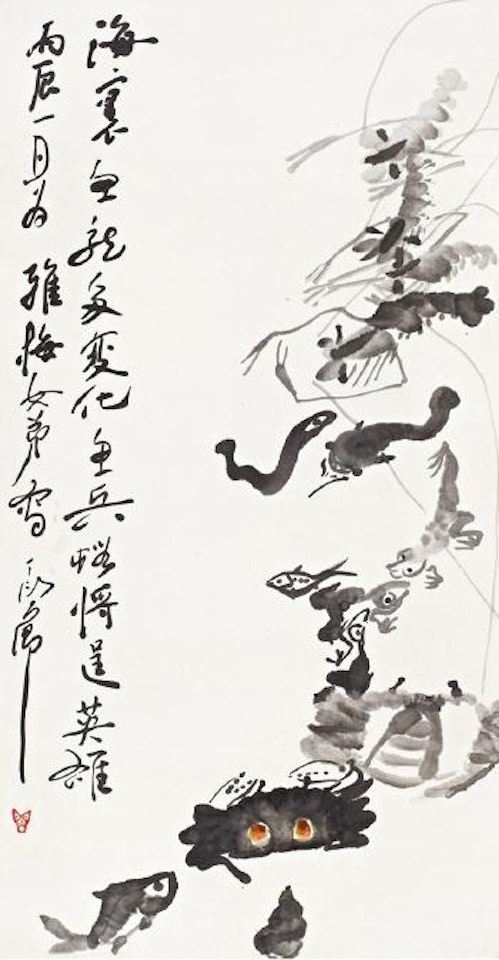 海裏魚龍多變化魚兵蝦將逞英雄
丙辰一月為雅梅女弟寫丁衍庸